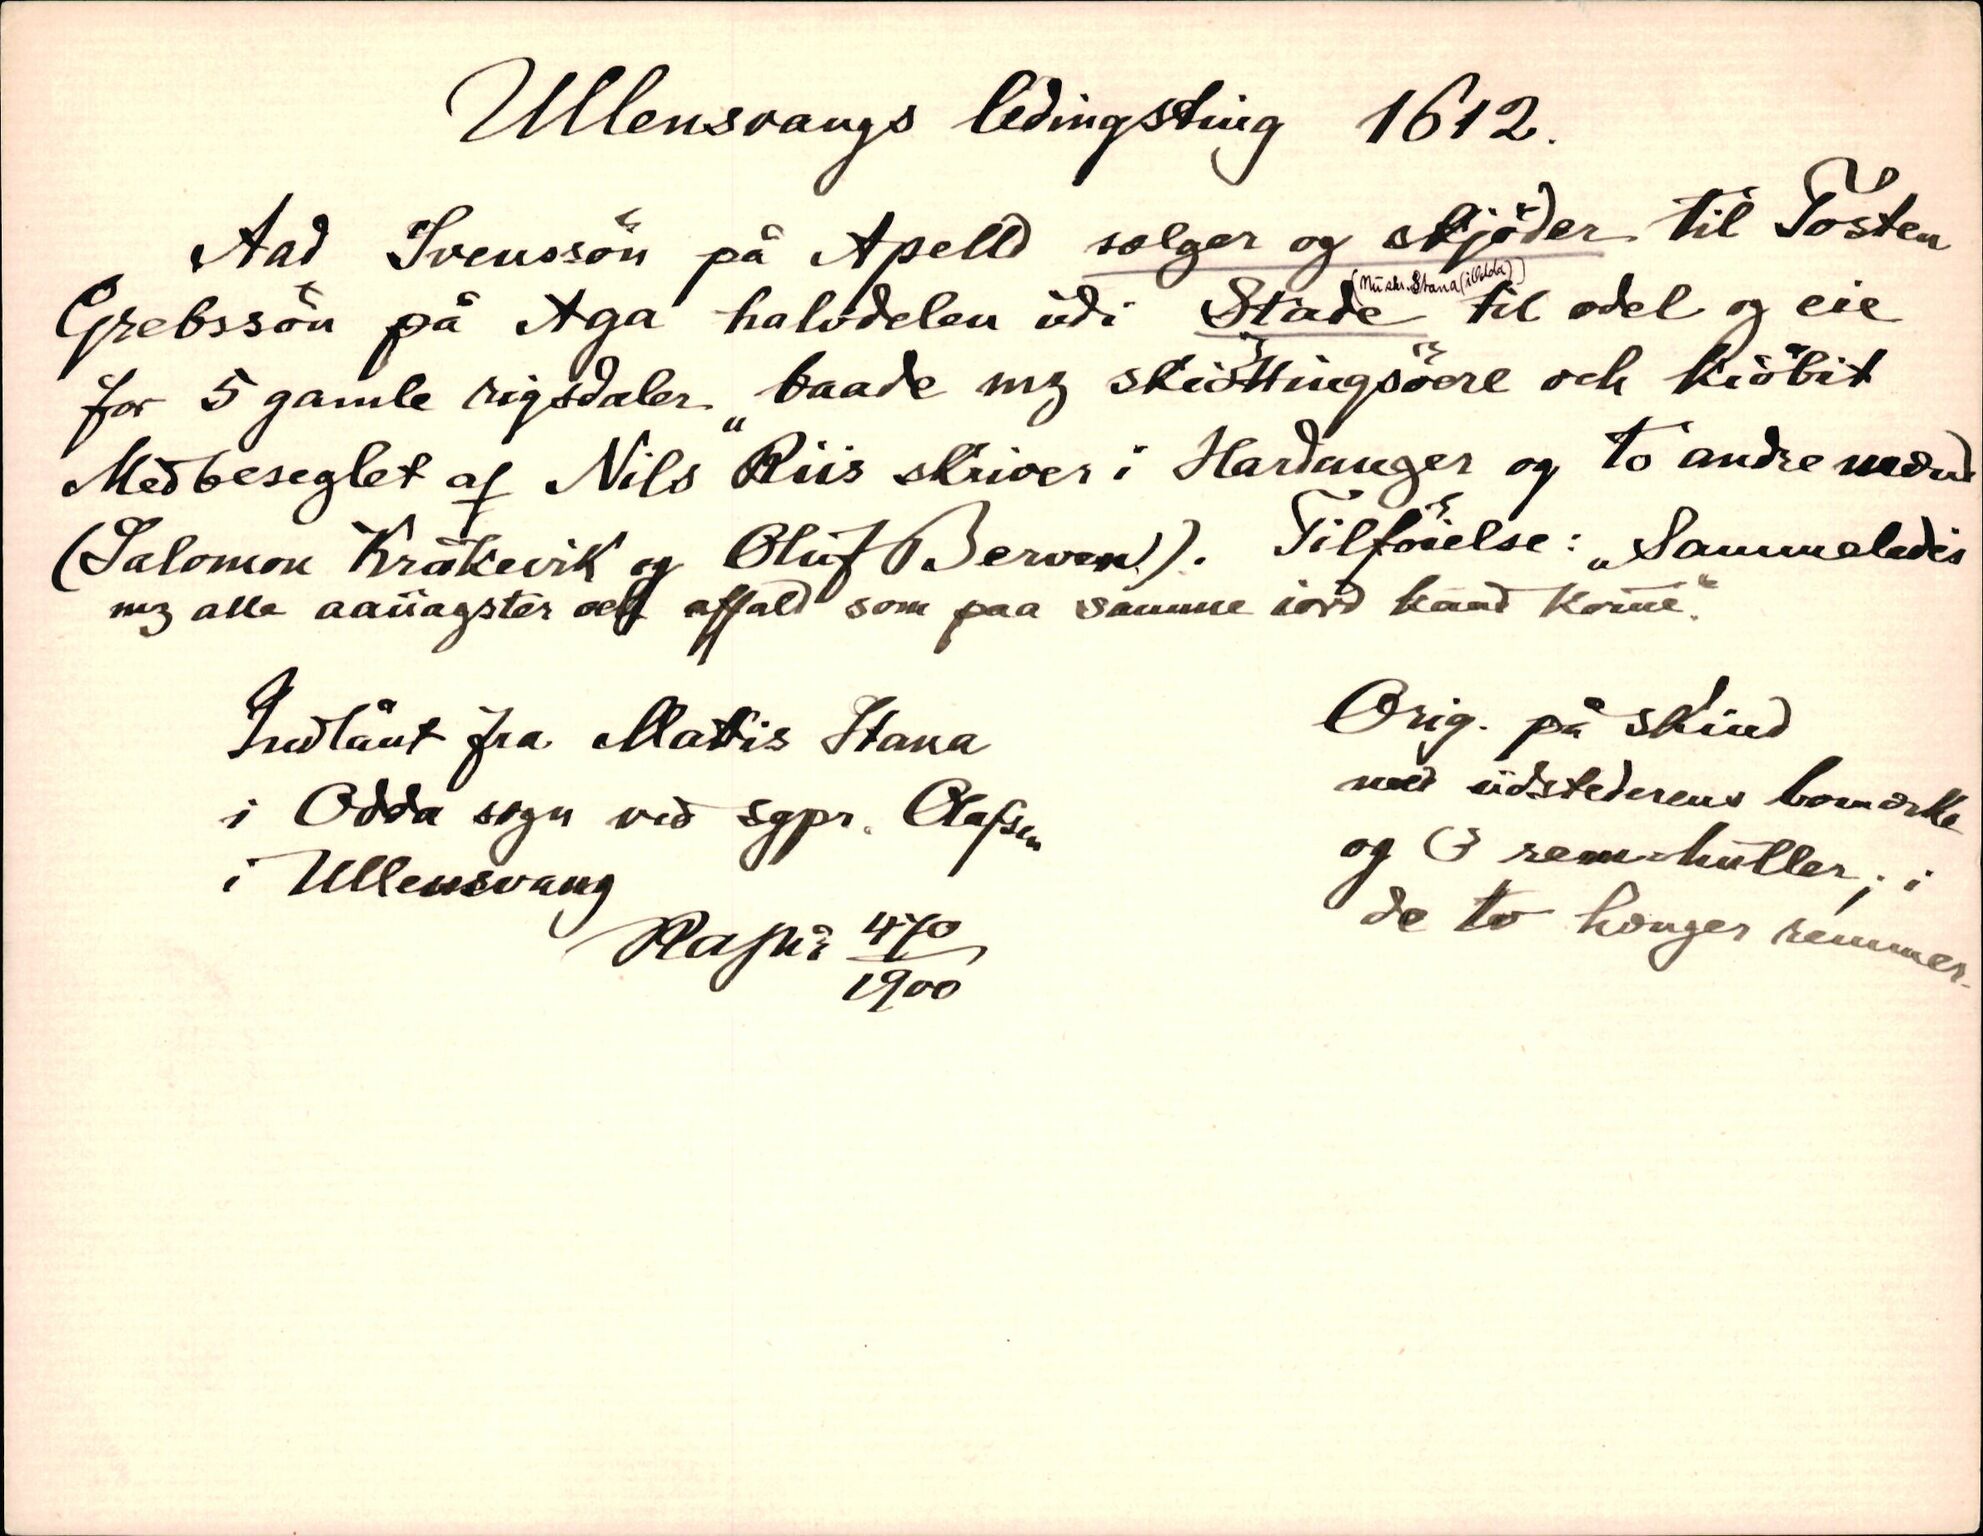 Ullensvangs ledingsting 1612.
Aad Svenssön på Apelld sælger og skjöder til Tosten
(Nu skr. Stana (i Odda))
Grebssön på Aga halvdelen udi Stade til odel og eie
for 5 gamle rigsdaler „baade mz skiöttingsöere och kiöbit
Medbeseglet af Nils Riis skriver i Hardanger og to andre mænd
(Salomon Kråkevik og Oluf Berven). Tilföielse: „Sammeledis
mz alle aauagster och affald som paa samme iord kand komme“.
Indlånt fra Mattis Stana
i Odda sogn ved sgpr. Olafsen
i Ullensvang
4/10
1900
Orig. på skind
med udstederens bomærke
og 3 rem-huller; i
de to hænger remmer.